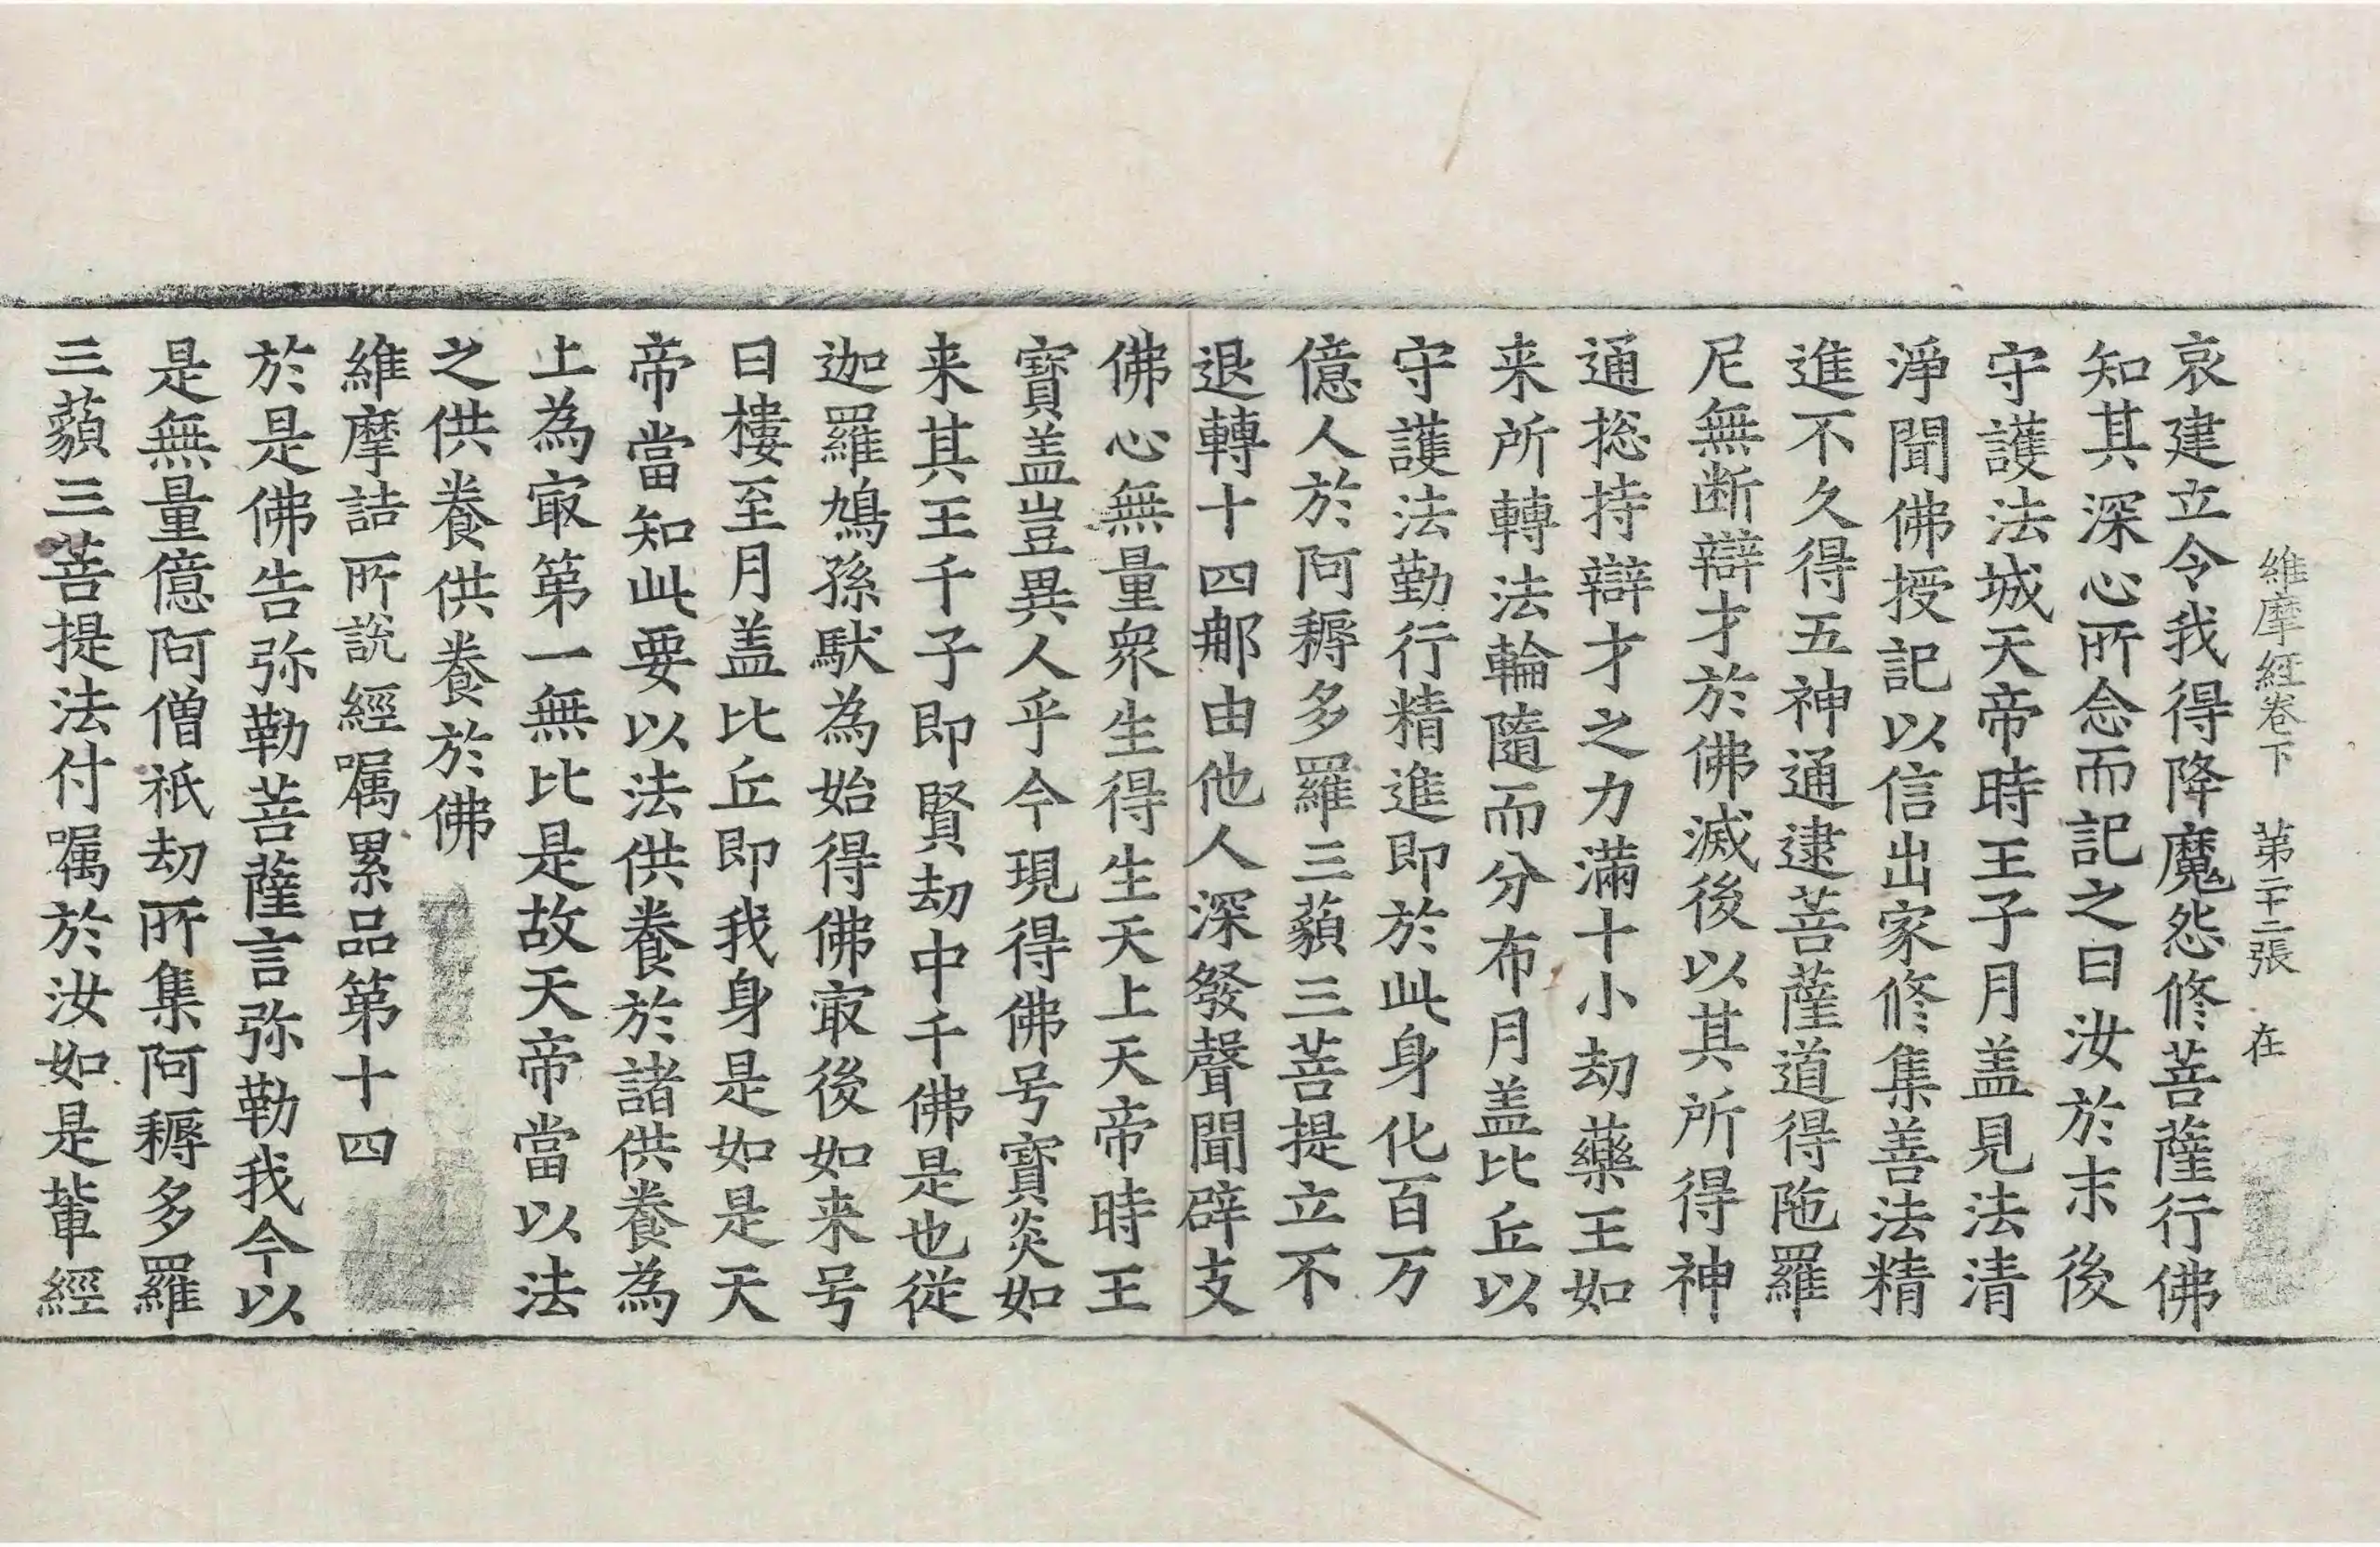 維摩經卷下 第二十二張 在
哀建立令我得降魔怨修菩薩行佛
知其深心所念而記之曰汝於末後
守護法城天帝時王子月盖見法清
淨聞佛授記以信出家修集善法精
進不久得五神通逮菩薩道得陁羅
尼無断辯才於佛滅後以其所得神
通捴持辯才之力滿十小劫藥王如
来所轉法輪隨而分布月盖比丘以
守護法勤行精進即於此身化百万
億人於阿耨多羅三藐三菩提立不
退轉十四那由他人深發聲聞辟支
佛心無量衆生得生天上天帝時王
寶盖豈異人乎今現得佛号寶炎如
来其王千子即賢劫中千佛是也從
迦羅鳩孫䭾為始得佛㝡後如来号
曰樓至月盖比丘即我身是如是天
帝當知此要以法供養於諸供養為
上為㝡第一無比是故天帝當以法
之供養供養於佛
維摩詰所說經嘱累品第十四
於是佛告弥勒菩薩言弥勒我今以
是無量億阿僧祇劫所集阿耨多羅
三藐三菩提法付嘱於汝如是軰經